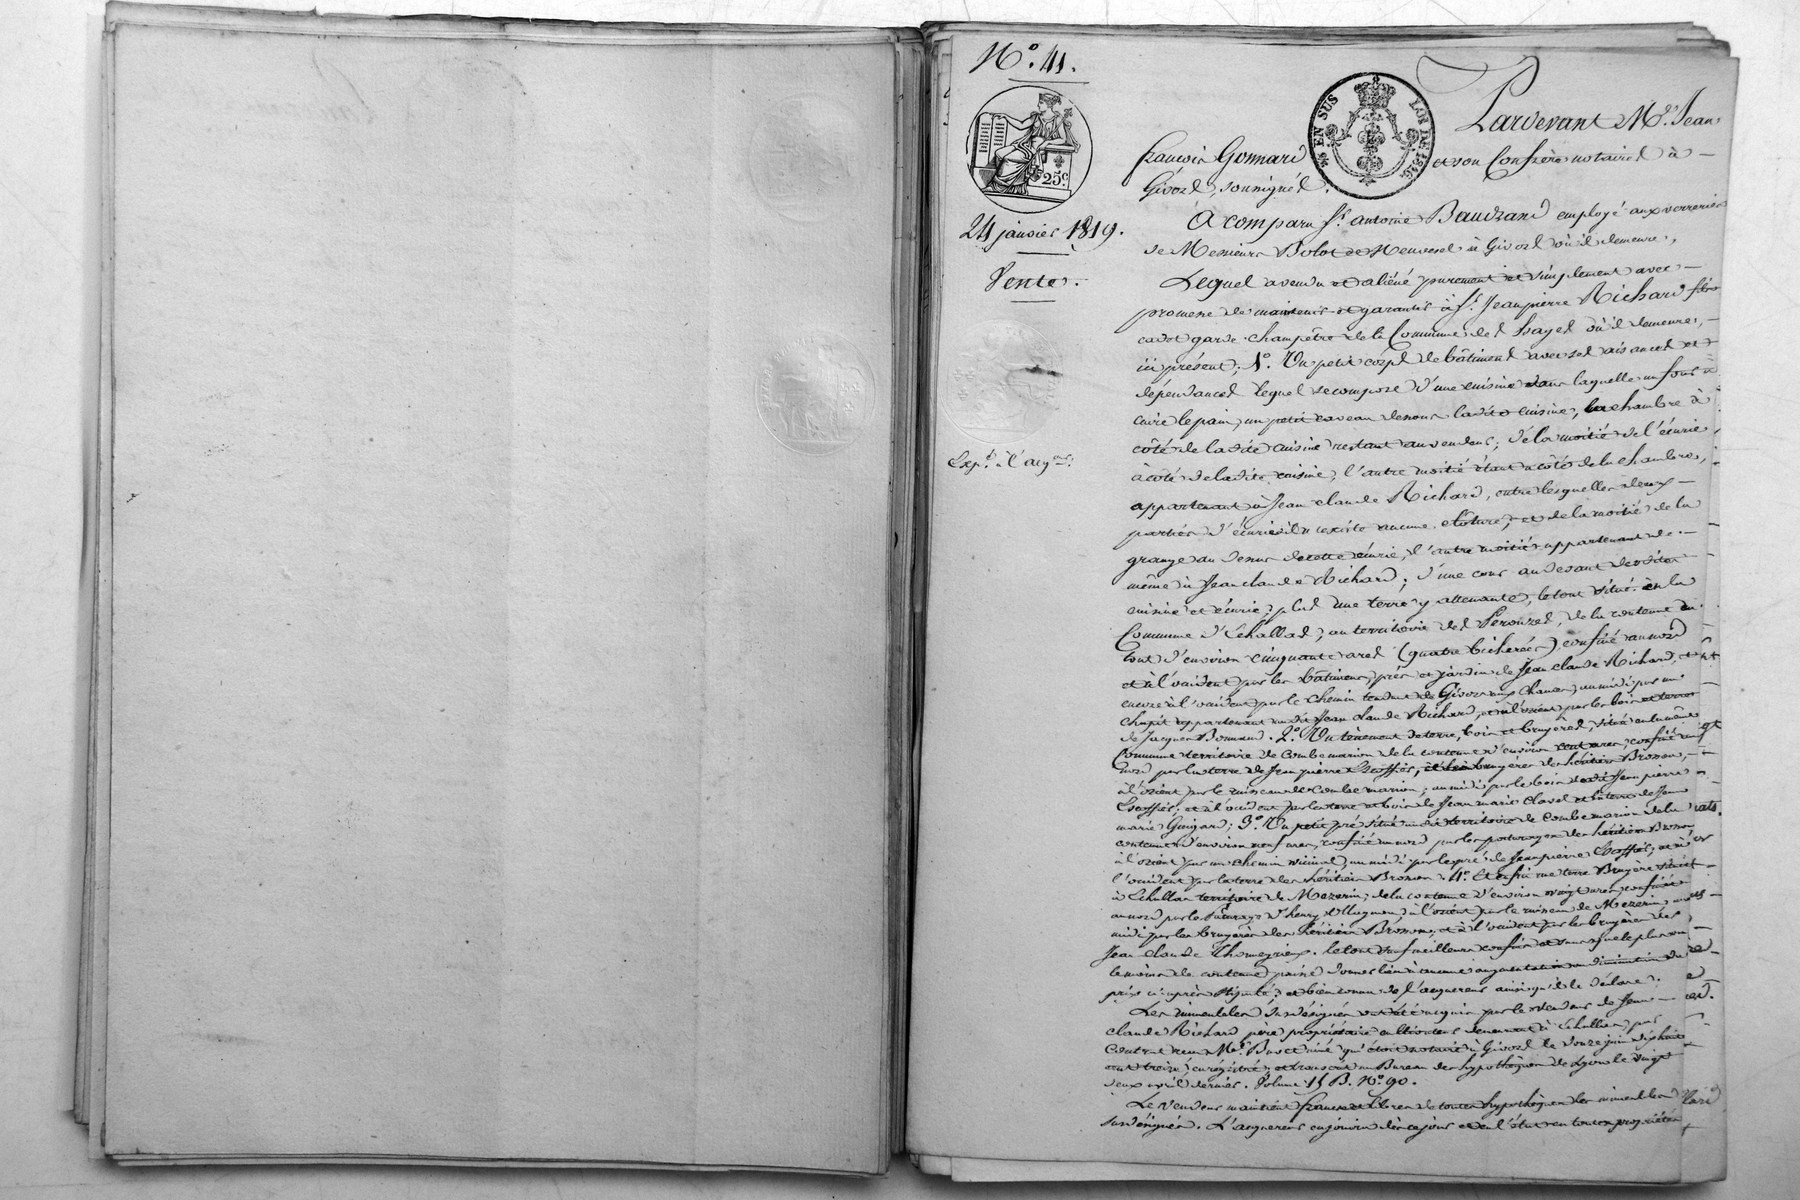 N.° 41.
25c
EN SUS
LOI DE 1816
24 janvier 1819.
Vente.
Expé. à l'acqr.
Pardevant Me. Jean
francois Gonnard et son Confrère notaires à
Givors, soussignés.
A comparu Sr. antoine Baudrand employé aux verreries
de Messieurs Bolot et Neuvesel à Givors où il demeure,
Lequel a vendu et aliéné purement et simplement avec
promesse de maintenir et garantir à Sr. Jean pierre Richard fils
cadet garde champêtre de la Commune des hayes où il demeure,
ici présent; 1°. Un petit corps de bâtiment avec ses aisances et
dépendances lequel se compose d'une cuisine dans laquelle un four à
cuire le pain, un petit caveau dessous ladite cuisine, la chambre à
côté de ladite cuisine restant au vendeur; de la moitié de l'écurie
à côté de ladite cuisine; l'autre moitié étant à côté de la chambre,
appartenant à Jean claude Richard, entre lesquelles deux
parties d'écurie il n'existe aucune clôture, et de la moitié de la
grange au dessus de cette écurie, l'autre moitié appartenant de
même à Jean claude Richard; d'une cour au devant desdites
cuisine et écurie; plus une terre y attenante, le tout situé en la
Commune d'Echallas, au territoire des Perouzes, de la contenue du
tout d'environ cinquante ares (quatre bicherées), confiné au nord
et à l'occident par les bâtiments, prés et jardin de Jean claude Richard,
encore à l'occident par le chemin tendant de Givors aux , au midi par un
appartenant audit Jean claude Richard, et à l'orient par les bois et terres
de Jacques Bonnand. 2°. Un tènement de terre, bois et bruyères, situé en la même
Commune territoire de Combemarion de la contenue d'environ cent ares, confiné au
nord par la terre de Jean pierre Escoffier, et les bruyères des héritiers Brosson,
à l'orient par le ruisseau de Combemarion; au midi par le bois dudit Jean pierre
Escoffier; et à l'occident par la terre et bois de Jean marie Clavel et la terre de Jean
marie Guigard; 3°. Un petit pré situé audit territoire de Combemarion de la
contenue d'environ neuf ares, confiné au nord par les paturages des héritiers Brosson
à l'orient par un chemin vicinal, au midi par le pré de Jean pierre Escoffier, et à
l'occident par la terre des héritiers Brosson. 4°. Et enfin une terre Bruyère située
à Echallas territoire de Mezerin, de la contenue d'environ vingt ares, confinée
au nord par le Paturage d'henry , à l'orient par le ruisseau de Mezerin, au
midi par les bruyères des héritiers Brosson, et à l'occident par les bruyères de
Jean claude Thomeyrieux. le tout sauf meilleurs confins et sans que le plus ou
le moins de contenue puisse donner lieu à aucune augmentation ou diminution du
prix ci après stipulé; et bien connu de l'acquereur ainsi qu'il le déclare.
Les immeubles susdésignés ont été acquis par le vendeur de Jean
claude Richard père propriétaire cultivateur demeurant à Echallas, par
Contrat reçu Me. qui étoit notaire à Givors le douze juin dix huit
cent treize, enrégistré, et transcrit au Bureau des hypothèques de Lyon le vingt
deux avril dernier. Volume 15 B. N°. 90.
Le vendeur maintient francs et libres de toutes hypothèques les immeubles
susdésignés. L'acquereur en jouira dès ce jour et en l'état en toute propriété